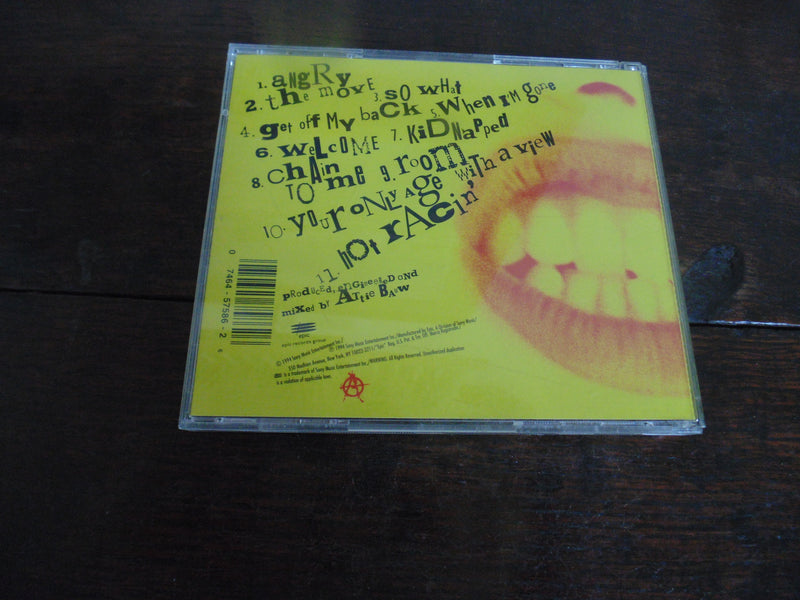 1. angRy
2. the moVE 3. sO wHat
4. get off My baCk 5. When I'M gone
6. weLCOME 7. KiDNapped
8. ChAin TO me 9. room with a view
10. youR oNLy AGe
11. hot rAcin'
pRoduced, engineered and
mixed by ARTie BAuw
0 7464-57586-2 6
epic
epic records group
© 1994 Sony Music Entertainment Inc./
℗ 1994 Sony Music Entertainment Inc./Manufactured by Epic, A Division of Sony Music/
550 Madison Avenue, New York, NY 10022-3211/"Epic" Reg. U.S. Pat. & Tm. Off. Marca Registrada./
is a trademark of Sony Music Entertainment Inc./WARNING: All Rights Reserved. Unauthorized duplication
is a violation of applicable laws.